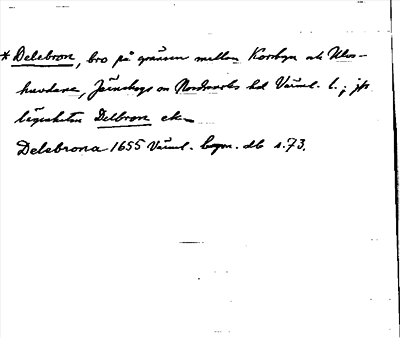 *Delebron, bro på gränsen mellan Korsbyn och Klos-
huvdane, Järnskogs och Nordmarks hd Värml. l.; jfr
lägenheten Delbron ek
Delebrona 1655 Värml. lagm. db s. 73.